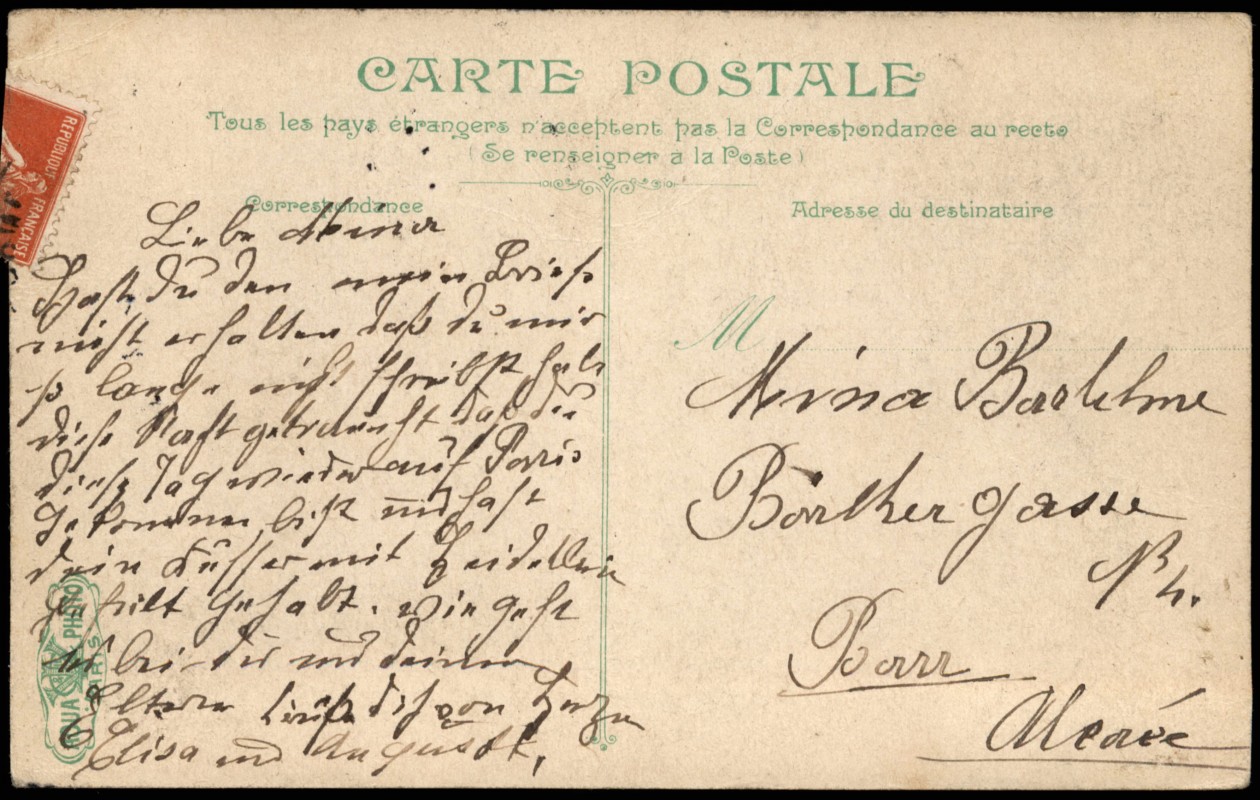 CARTE POSTALE
Tous les pays étrangers n'acceptent pas la Correspondance au recto
(Se renseigner a la Poste)
Correspondance
Adresse du destinataire
REPUBLIQUE FRANÇAISE
Liebe Mina
Hast du den mein Brief
nicht erhalten daß du mir
so lange nicht schreibst habe
diese Nacht getraumt daß du
diese Tag wieder auf Paris
gekommen bist und hast
dein Küsser mit
geteilt gehabt. wie geht
es bei dir und deinen
Eltern Grüße dich von Herzen
Elisa und August.
M
Mina Barthelme
gasse
N 4.
Barr
AQUA PHOTO
PARIS